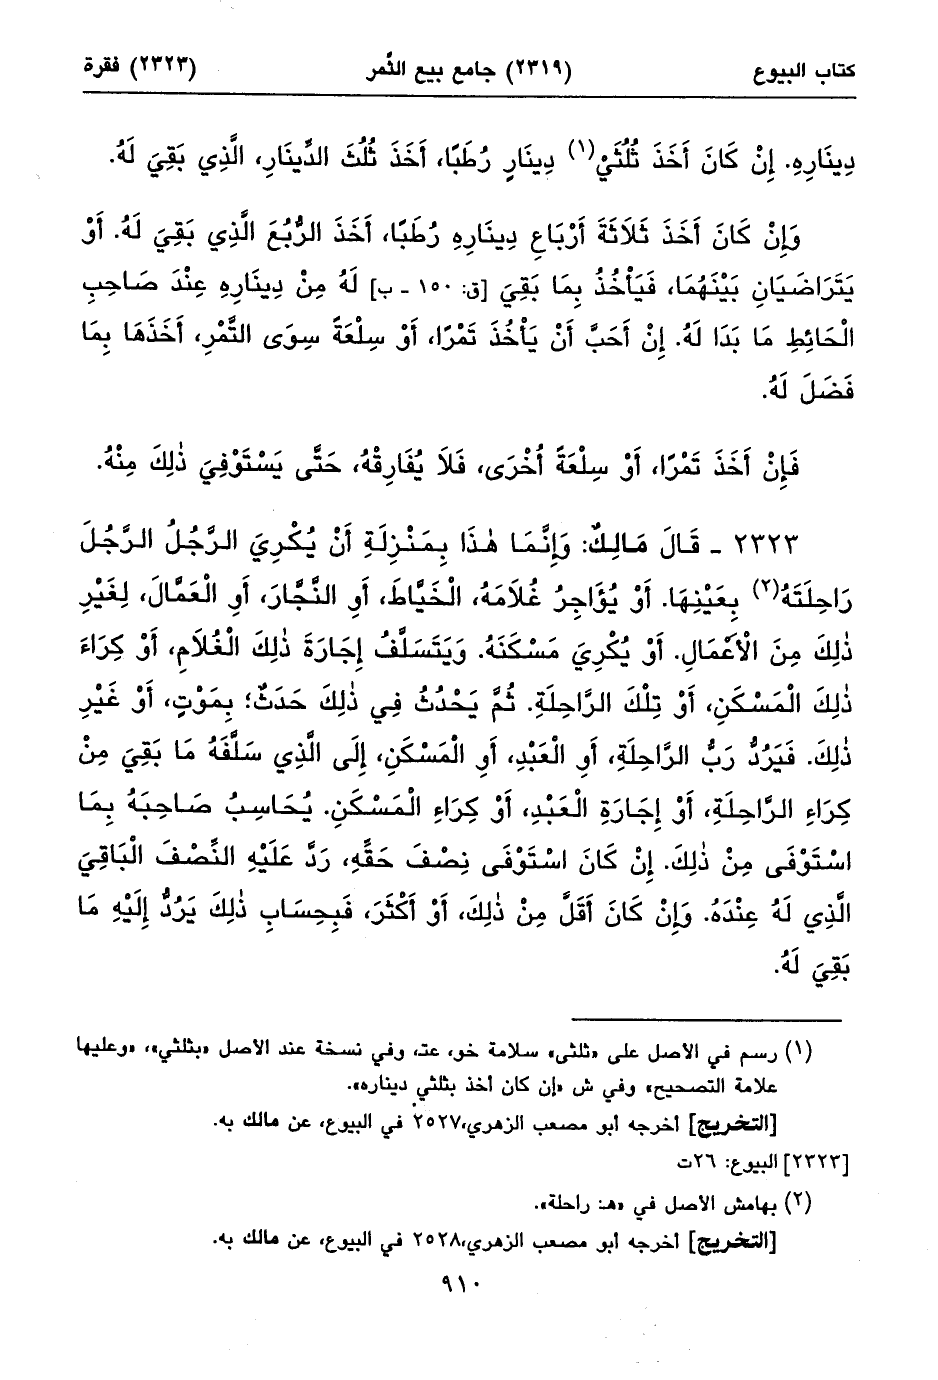 كتاب البيوع (٢٣١٩) جامع بيع الثَّمر (٢٣٢٣) فقرة
دِينَارِهِ. إِنْ كَانَ أَخَذَ ثُلُثَيْ(١) دِينَارٍ رُطَبًا، أَخَذَ ثُلُثَ الدِّينَارِ، الَّذِي بَقِيَ لَهُ.
وَإِنْ كَانَ أَخَذَ ثَلَاثَةَ أَرْبَاعِ دِينَارِهِ رُطَبًا، أَخَذَ الرُّبُعَ الَّذِي بَقِيَ لَهُ. أَوْ
يَتَرَاضَيَانِ بَيْنَهُمَا، فَيَأْخُذُ بِمَا بَقِيَ [ق: ١٥٠ - ب] لَهُ مِنْ دِينَارِهِ عِنْدَ صَاحِبِ
الْحَائِطِ مَا بَدَا لَهُ. إِنْ أَحَبَّ أَنْ يَأْخُذَ تَمْرًا، أَوْ سِلْعَةً سِوَى التَّمْرِ، أَخَذَهَا بِمَا
فَضَلَ لَهُ.
فَإِنْ أَخَذَ تَمْرًا، أَوْ سِلْعَةً أُخْرَى، فَلَا يُفَارِقْهُ، حَتَّى يَسْتَوْفِيَ ذٰلِكَ مِنْهُ.
٢٣٢٣ - قَالَ مَالِكٌ: وَإِنَّمَا هٰذَا بِمَنْزِلَةِ أَنْ يُكْرِيَ الرَّجُلُ الرَّجُلَ
رَاحِلَتَهُ(٢) بِعَيْنِهَا. أَوْ يُؤَاجِرُ غُلَامَهُ، الْخَيَّاطَ، أَوِ النَّجَّارَ، أَوِ الْعَمَّالَ، لِغَيْرِ
ذٰلِكَ مِنَ الْأَعْمَالِ. أَوْ يُكْرِيَ مَسْكَنَهُ. وَيَتَسَلَّفُ إِجَارَةَ ذٰلِكَ الْغُلَامِ، أَوْ كِرَاءَ
ذٰلِكَ الْمَسْكَنِ، أَوْ تِلْكَ الرَّاحِلَةِ. ثُمَّ يَحْدُثُ فِي ذٰلِكَ حَدَثٌ؛ بِمَوْتٍ، أَوْ غَيْرِ
ذٰلِكَ. فَيَرُدُّ رَبُّ الرَّاحِلَةِ، أَوِ الْعَبْدِ، أَوِ الْمَسْكَنِ، إِلَى الَّذِي سَلَّفَهُ مَا بَقِيَ مِنْ
كِرَاءِ الرَّاحِلَةِ، أَوْ إِجَارَةِ الْعَبْدِ، أَوْ كِرَاءِ الْمَسْكَنِ. يُحَاسِبُ صَاحِبَهُ بِمَا
اسْتَوْفَى مِنْ ذٰلِكَ. إِنْ كَانَ اسْتَوْفَى نِصْفَ حَقِّهِ، رَدَّ عَلَيْهِ النِّصْفَ الْبَاقِيَ
الَّذِي لَهُ عِنْدَهُ. وَإِنْ كَانَ أَقَلَّ مِنْ ذٰلِكَ، أَوْ أَكْثَرَ، فَبِحِسَابِ ذٰلِكَ يَرُدُّ إِلَيْهِ مَا
بَقِيَ لَهُ.
(١) رسم في الأصل على «ثلثي» سلامة خو، عت، وفي نسخة عند الأصل «بثلثي»، «وعليها
علامة التصحيح» وفي ش «إن كان أخذ بثلثي ديناره».
[التخريج] أخرجه أبو مصعب الزهري،٢٥٢٧ في البيوع، عن مالك به.
[٢٣٢٣] البيوع: ٢٦ت
(٢) بهامش الأصل في «هـ: راحلة».
[التخريج] أخرجه أبو مصعب الزهري،٢٥٢٨ في البيوع، عن مالك به.
٩١٠